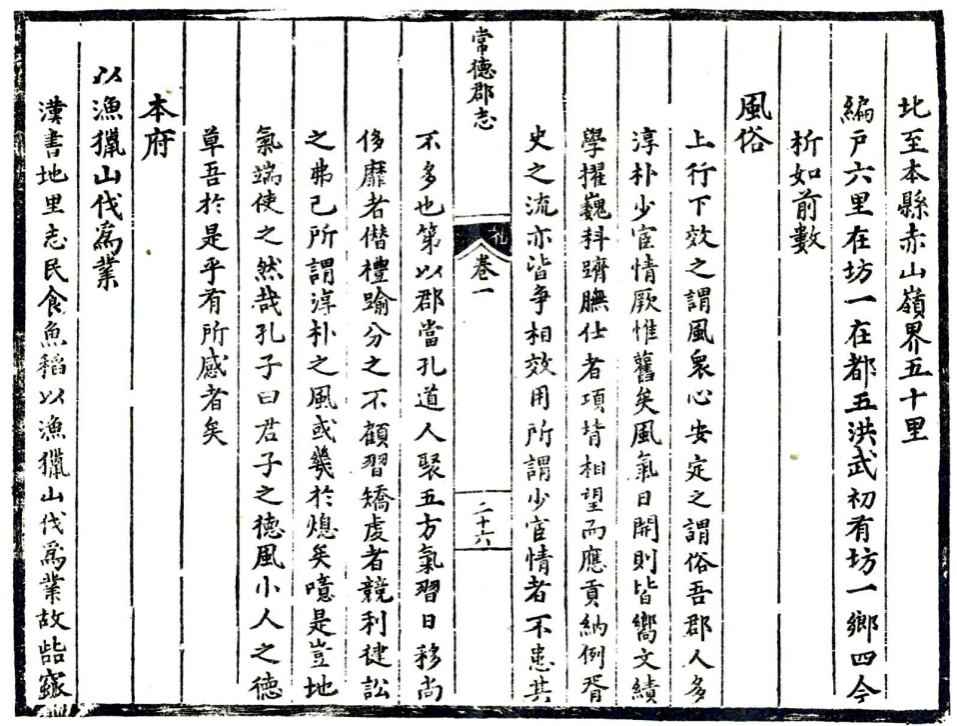 北至本縣赤山嶺界五十里
編戶六里在坊一在都五洪武初有坊一鄉四今
析如前數
風俗
上行下效之謂風衆心安定之謂俗吾郡人多
淳朴少宦情厥惟舊矣風氣日開則皆嚮文績
學擢巍科躋膴仕者項背相望而應貢納例胥
史之流亦皆争相效用所謂少宦情者不患其
常德郡志
禮
卷一
二十六
不多也第以郡當孔道人聚五方氣習日移尚
侈靡者僭禮踰分之不顧習矯虔者競利健訟
之弗已所謂淳朴之風或幾於熄矣噫是豈地
氣端使之然哉孔子曰君子之德風小人之德
草吾於是乎有所感者矣
本府
以漁獵山伐爲業
漢書地里志民食魚稻以漁獵山伐爲業故呰窳